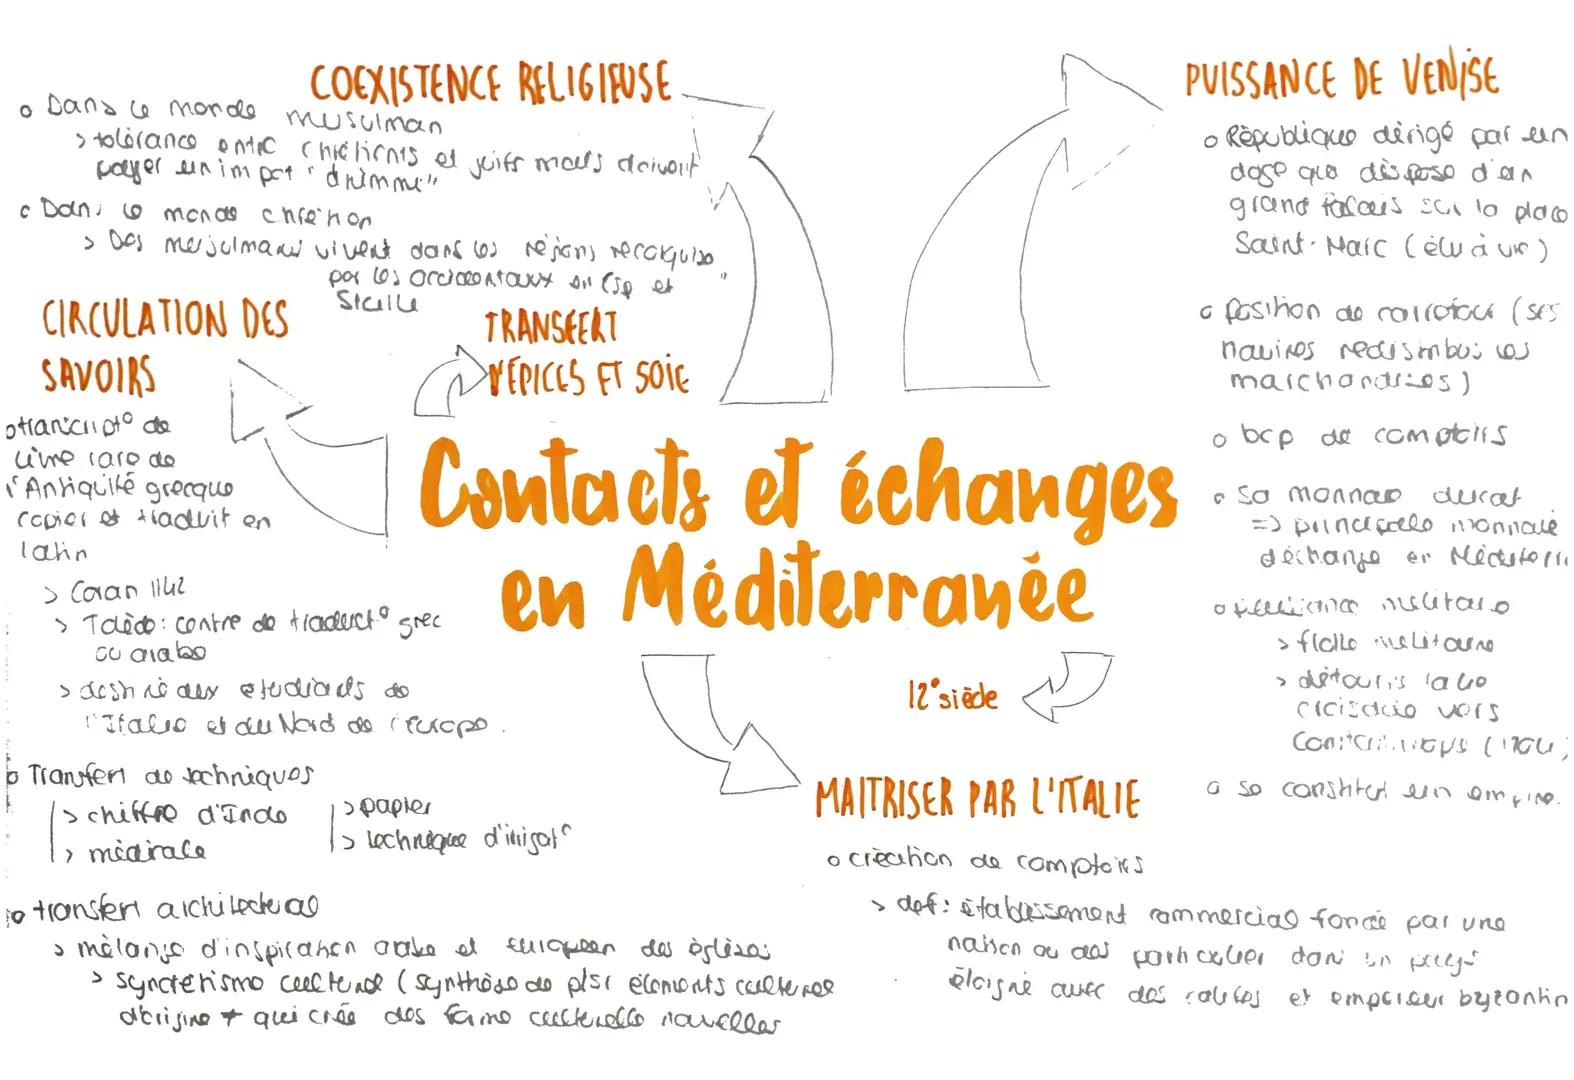 COEXISTENCE RELIGIEUSE
o Dans le monde musulman
> tolérance entre chrétiens et juifs mais doivent
payer un impot "dhimmi"
o Dans le monde chrétien
> Des musulmans vivent dans les régions reconquise
par les occidentaux en Esp et
Sicile
CIRCULATION DES
SAVOIRS
o transcript° de
livre rare de
l'Antiquité grecque
copier et traduit en
latin
> Coran 1142
> Tolède: centre de traduct° grec
ou arabe
> destiné aux etudiants de
l'Italie et du Nord de l'Europe.
o Transfert de techniques
> chiffre d'Inde
> médicale
> papier
> technique d'irrigat°
o transfert architectural
> mélange d'inspiration arabe et européen des églises
> syncrétisme culturel (synthèse de plsr éléments culturel
d'origine ≠ qui crée des forme culturelle nouvelles
TRANSFERT
D'ÉPICES ET SOIE
Contacts et échanges
en Méditerranée
12° siècle
MAITRISER PAR L'ITALIE
o création de comptoirs
> def: établissement commercial fondé par une
nation ou des particulier dans un pays
éloigné avec des et empereur byzantin
PUISSANCE DE VENISE
o République dirigé par un
doge qui dispose d'un
grand Palais sur la place
Saint-Marc (élu à vie)
o Position de carrefour (ses
navires redistribue les
marchandises)
o bcp de comptoirs
o Sa monnaie ducat
=> principale monnaie
d'échange en Méditerr
o puissance militaire
> flotte militaire
> détourne la 4e
croisade vers
Constantinople (1204)
o se constitue un empire.